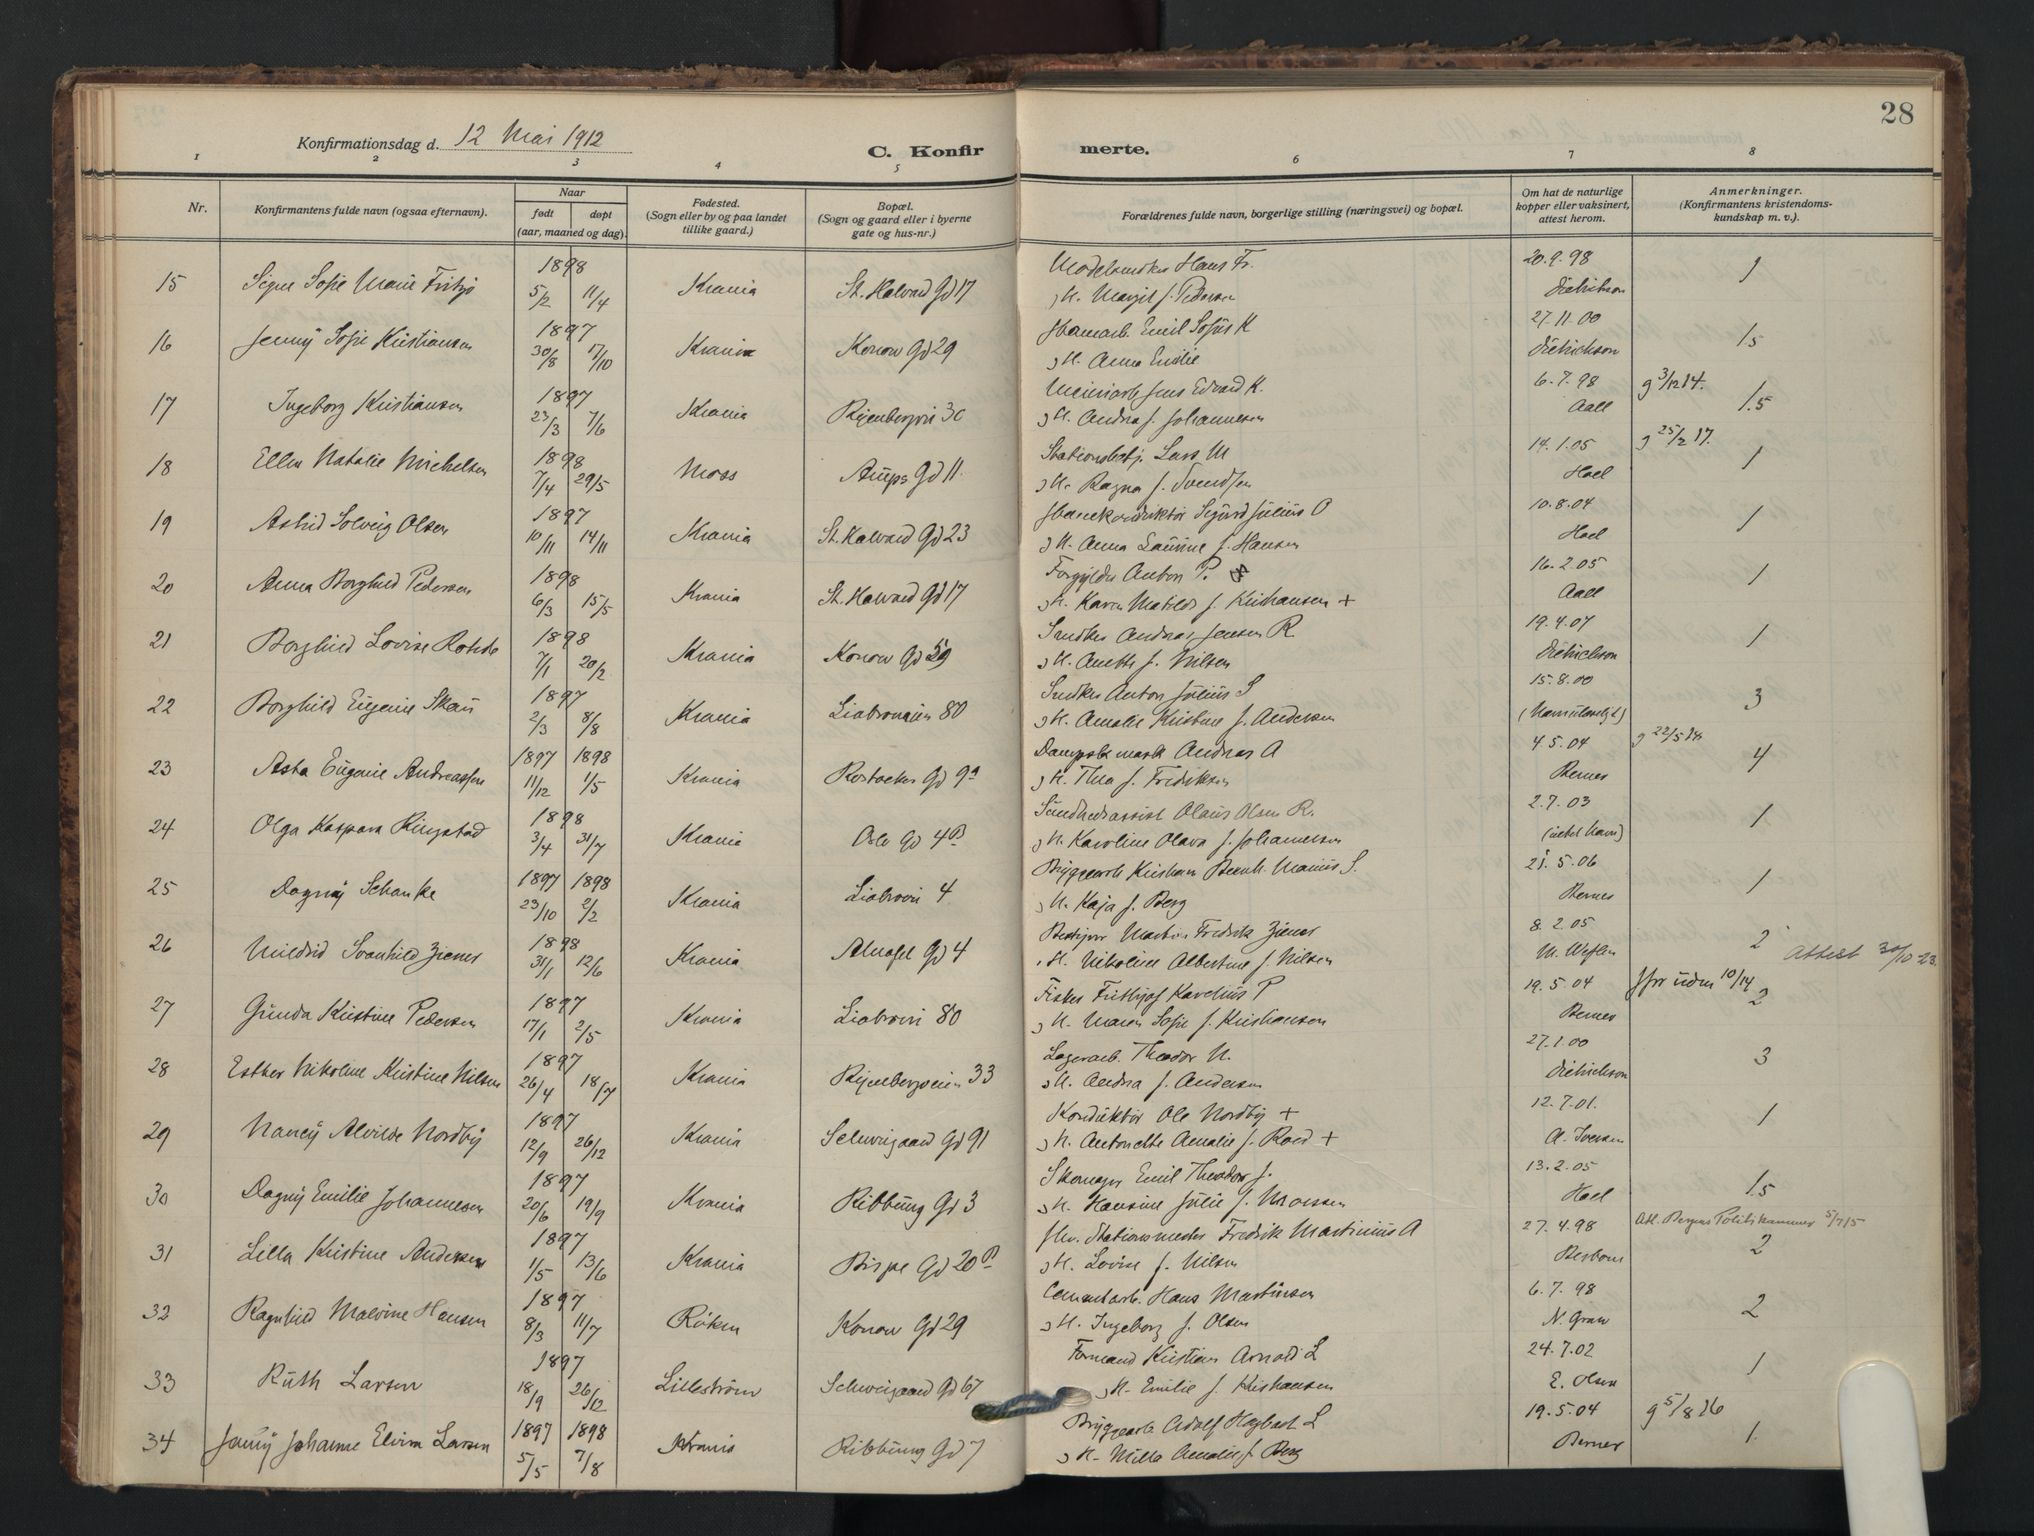 28
Konfirmationsdag d. 12 Mai 1912
C. Konfirmerte.
1 2 3 4 5 6 7 8
Nr.
Konfirmantens fulde navn (ogsaa efternavn).
Naar
født døpt
(aar, maaned og dag).
Fødested.
(Sogn eller by og paa landet
tillike gaard.)
Bopæl.
(Sogn og gaard eller i byerne
gate og hus-nr.)
Forældrenes fulde navn, borgerlige stilling (næringsvei) og bopæl.
Om hat de naturlige
kopper eller vaksinert,
attest herom.
Anmerkninger.
(Konfirmantens kristendoms-
kundskap m. v.).
1898 Hans Fr. 20.9.98
15 Signe Sofie Marie 5/2 11/4 Krania St. Halvard Gd 17 Margit f. Pedersen Dietrichson 1
1897 Emil Sofus K 27.11.00
16 Jenny Sofie Kristiansen 30/8 17/10 Krania Konow Gd 29 H. Anna Emilie Dietrichson 1.5
1897 Meieriarb Jens Edvard K. 6.7.98 g 3/12 14.
17 Ingeborg Kristiansen 23/3 7/6 Krania 30 H. Andrea f. Johannesen Aall 1.5
1898 Stationsbetj. Lars M 14.1.05 g 25/2 17.
18 Ellen Natalie Michelsen 7/4 29/5 Moss Arups Gd 11. H. Ragna f. Svendsen Hoel 1
1897 Sigurd Julius O 10.8.04
19 Astrid Solveig Olsen 10/11 14/11 Krania St. Halvard Gd 23 H. Anna Laurine f. Hansen Hoel 1
1898 Forgylder Anton P. 16.2.05
20 Anna Borghild Pedersen 6/3 15/5 Krania St. Halvard Gd 17 H. Karen Matilde f. Kristiansen + Aall 1
1898 Snedker Andreas Jensen R. 19.4.07
21 Borghild Lovise Rohde 7/1 20/2 Krania Konow Gd H. Anette f. Nilsen Dietrichson 1
1897 Snedker Anton Julius S 15.8.00
22 Borghild Eugenie Skau 2/3 8/8 Krania 80 H. Amalie Kristine f. Andersen (Navn ulæseligt) 3
1897 1898 Andreas A 4.5.04 g 22/5
23 Asta Eugenie Andreassen 11/12 1/5 Krania Rostocker Gd 9 H. Thea f. Fredriksen Berner 4
1898 Sundhedsassist Olaus Olsen R. 2.7.03
24 Olga Kaspara Ringstad 3/4 31/7 Krania Oslo Gd 4B H. Karoline Olava f. Johannesen (intet Navn) 1
1897 1898 Bryggearb Kristian Bernh. Marius S. 21.5.06
25 Dagny Schanke 23/10 2/2 Krania Liabroveien 4 H. Kaja f. Berg Berner 1
1898 Martin Fredrik Ziener 8.2.05
26 Mildrid Svanhild Ziener 31/1 12/6 Krania Gd 4 H. Nikoline Albertine f. Nilsen 2 Attest 30/10 23.
1897 Fisker Frithjof Karelius P 19.5.04 10/14
27 Gunda Kristine Pedersen 17/1 2/5 Krania 80 H. Maren Sofie f. Kristiansen Berner 2
1897 Lagerarb. Theodor N. 27.1.00
28 Esther Nikoline Kristine Nilsen 26/4 18/7 Krania 33 H. Andrea f. Andersen Dietrichson 3
1897 Konduktør Ole Nordby + 12.7.01.
29 Nancy Alvilde Nordby 12/9 26/12 Krania Schweigaard Gd 91 H. Antonette Amalie f. Roed + A. Iversen 1
1897 Skomager Emil Theodor J. 13.2.05
30 Dagny Emilie Johannesen 20/6 19/9 Krania Ribbung Gd 3 H. Hansine Julie f. Hoel 1.5
1897 Stationsmester Fredrik Martinius A 27.4.98 Att. Bergens Politikammer 5/7 15
31 Lilla Kristine Andersen 1/5 13/6 Krania Bispe Gd 20B H. Lovise f. Nilsen 2
1897 Cementarb. Hans Martinsen 6.7.98
32 Ragnhild Malvine Hansen 8/3 11/7 Røken Konow Gd 29 H. Ingeborg f. Olsen N. Gran 2
1897 Formand Kristian Arnold L 24.7.02
33 Ruth Larsen 18/9 26/12 Lillestrøm Schweigaard Gd 67 H. Emilie f. Kristiansen E. Olsen 1
1897 1898 Bryggearb Adolf L 19.5.04 g 5/8 16
34 Jenny Johanne Elvira Larsen 5/5 7/8 Krania Ribbung Gd 7 H. Milla Amalie f. Berg Berner 1.